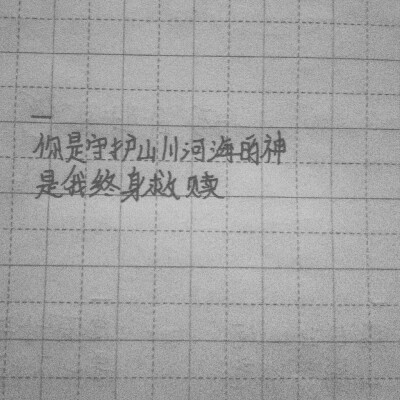 一
你是守护山川河海的神
是我终身救赎